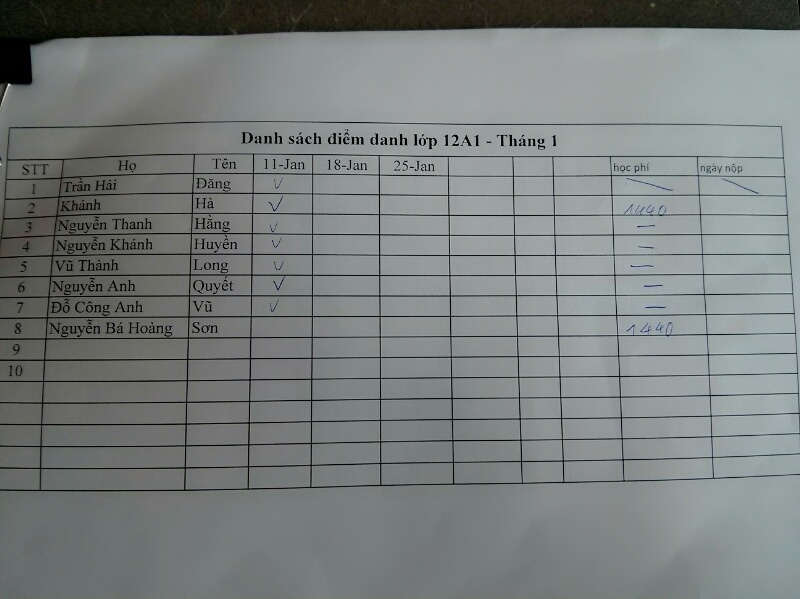 Danh sách điểm danh lớp 12A1 - Tháng 1
STT Họ Tên 11-Jan 18-Jan 25-Jan học phí ngày nộp
1 Trần Hải Đăng ✓
2 Khánh Hà ✓ 1440
3 Nguyễn Thanh Hằng ✓ —
4 Nguyễn Khánh Huyền ✓ —
5 Vũ Thành Long ✓ —
6 Nguyễn Anh Quyết ✓ —
7 Đỗ Công Anh Vũ ✓ —
8 Nguyễn Bá Hoàng Sơn 1440
9
10